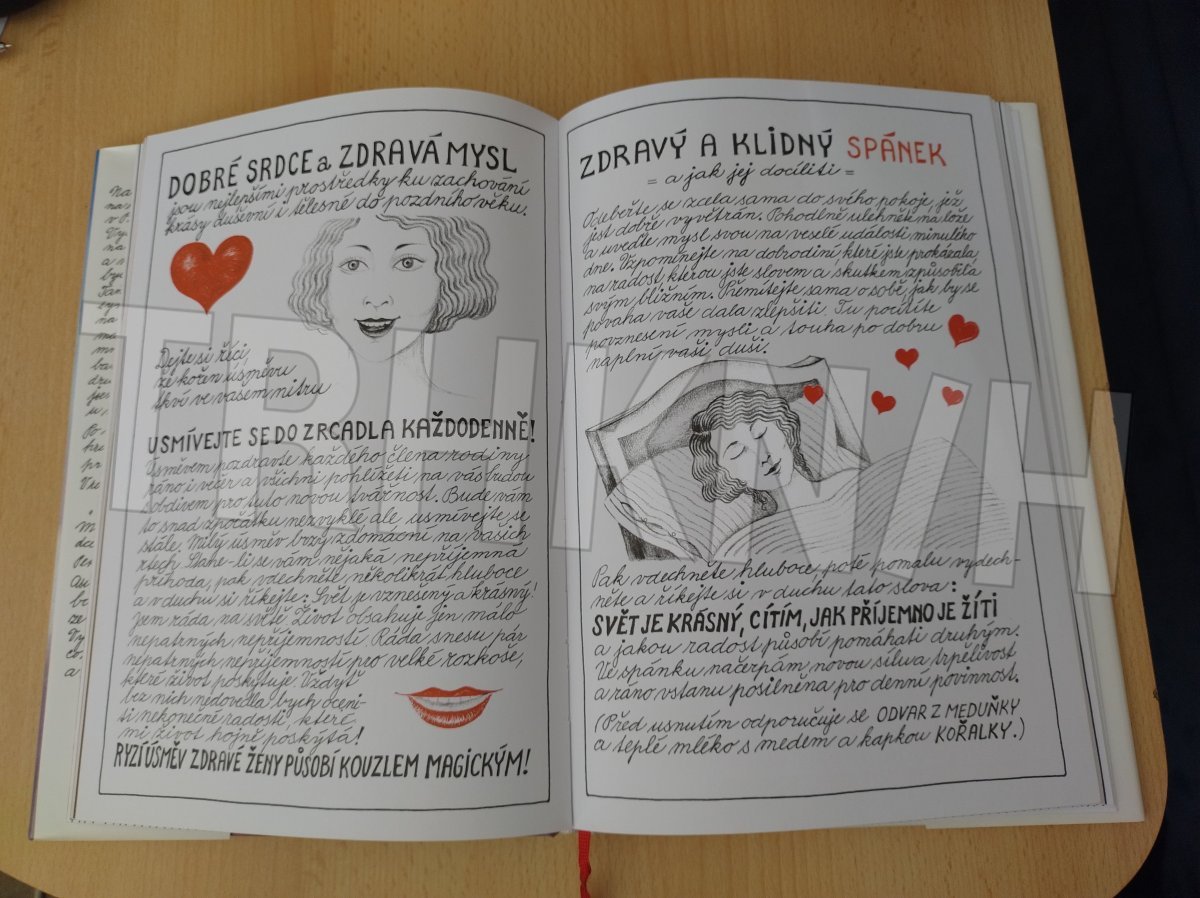 DOBRÉ SRDCE a ZDRAVÁ MYSL
jsou nejlepšími prostředky ku zachování
krásy duševní i tělesné do pozdního věku.
Dejte si říci,
že kořen úsměvu
tkví ve vašem nitru
USMÍVEJTE SE DO ZRCADLA KAŽDODENNĚ!
Úsměvem pozdravte každého člena rodiny
ráno i večer a všichni pohlížeti na vás budou
s obdivem pro tuto novou tvářnost. Bude vám
to snad zpočátku nezvyklé ale usmívejte se
stále. Milý úsměv brzy zdomácní na vašich
rtech. Stane-li se vám nějaká nepříjemná
příhoda, pak vdechněte několikrát hluboce
a v duchu si říkejte: Svět je vznešený a krásný!
Jsem ráda na světě. Život obsahuje jen málo
nepatrných nepříjemností. Ráda snesu pár
nepatrných nepříjemností pro velké rozkoše,
které život poskytuje. Vždyť
bez nich nedovedla bych oceni-
ti nekonečné radosti, které
mi život hojně poskýtá!
RYZÍ ÚSMĚV ZDRAVÉ ŽENY PŮSOBÍ KOUZLEM MAGICKÝM!
ZDRAVÝ A KLIDNÝ SPÁNEK
= a jak jej docíliti =
Odeberte se zcela sama do svého pokoje, jež
jest dobře vyvětrán. Pohodlně ulehněte na lože
a uveďte mysl svou na veselé události minulého
dne. Vzpomínejte na dobrodiní, které jste prokázala,
na radost, kterou jste slovem a skutkem způsobila
svým bližním. Přemítejte sama o sobě, jak by se
povaha vaše dala zlepšiti. Tu pocítíte
povznesení mysli a touha po dobru
naplní vaši duši.
Pak vdechněte hluboce, poté pomalu vydech-
něte a říkejte si v duchu tato slova:
SVĚT JE KRÁSNÝ, CÍTÍM, JAK PŘÍJEMNO JE ŽÍTI
a jakou radost působí pomáhati druhým.
Ve spánku načerpám novou sílu a trpělivost
a ráno vstanu posilněna pro denní povinnost.
(Před usnutím odporučuje se ODVAR Z MEDUŇKY
a teplé mléko s medem a kapkou KOŘALKY.)
TRHKNIH